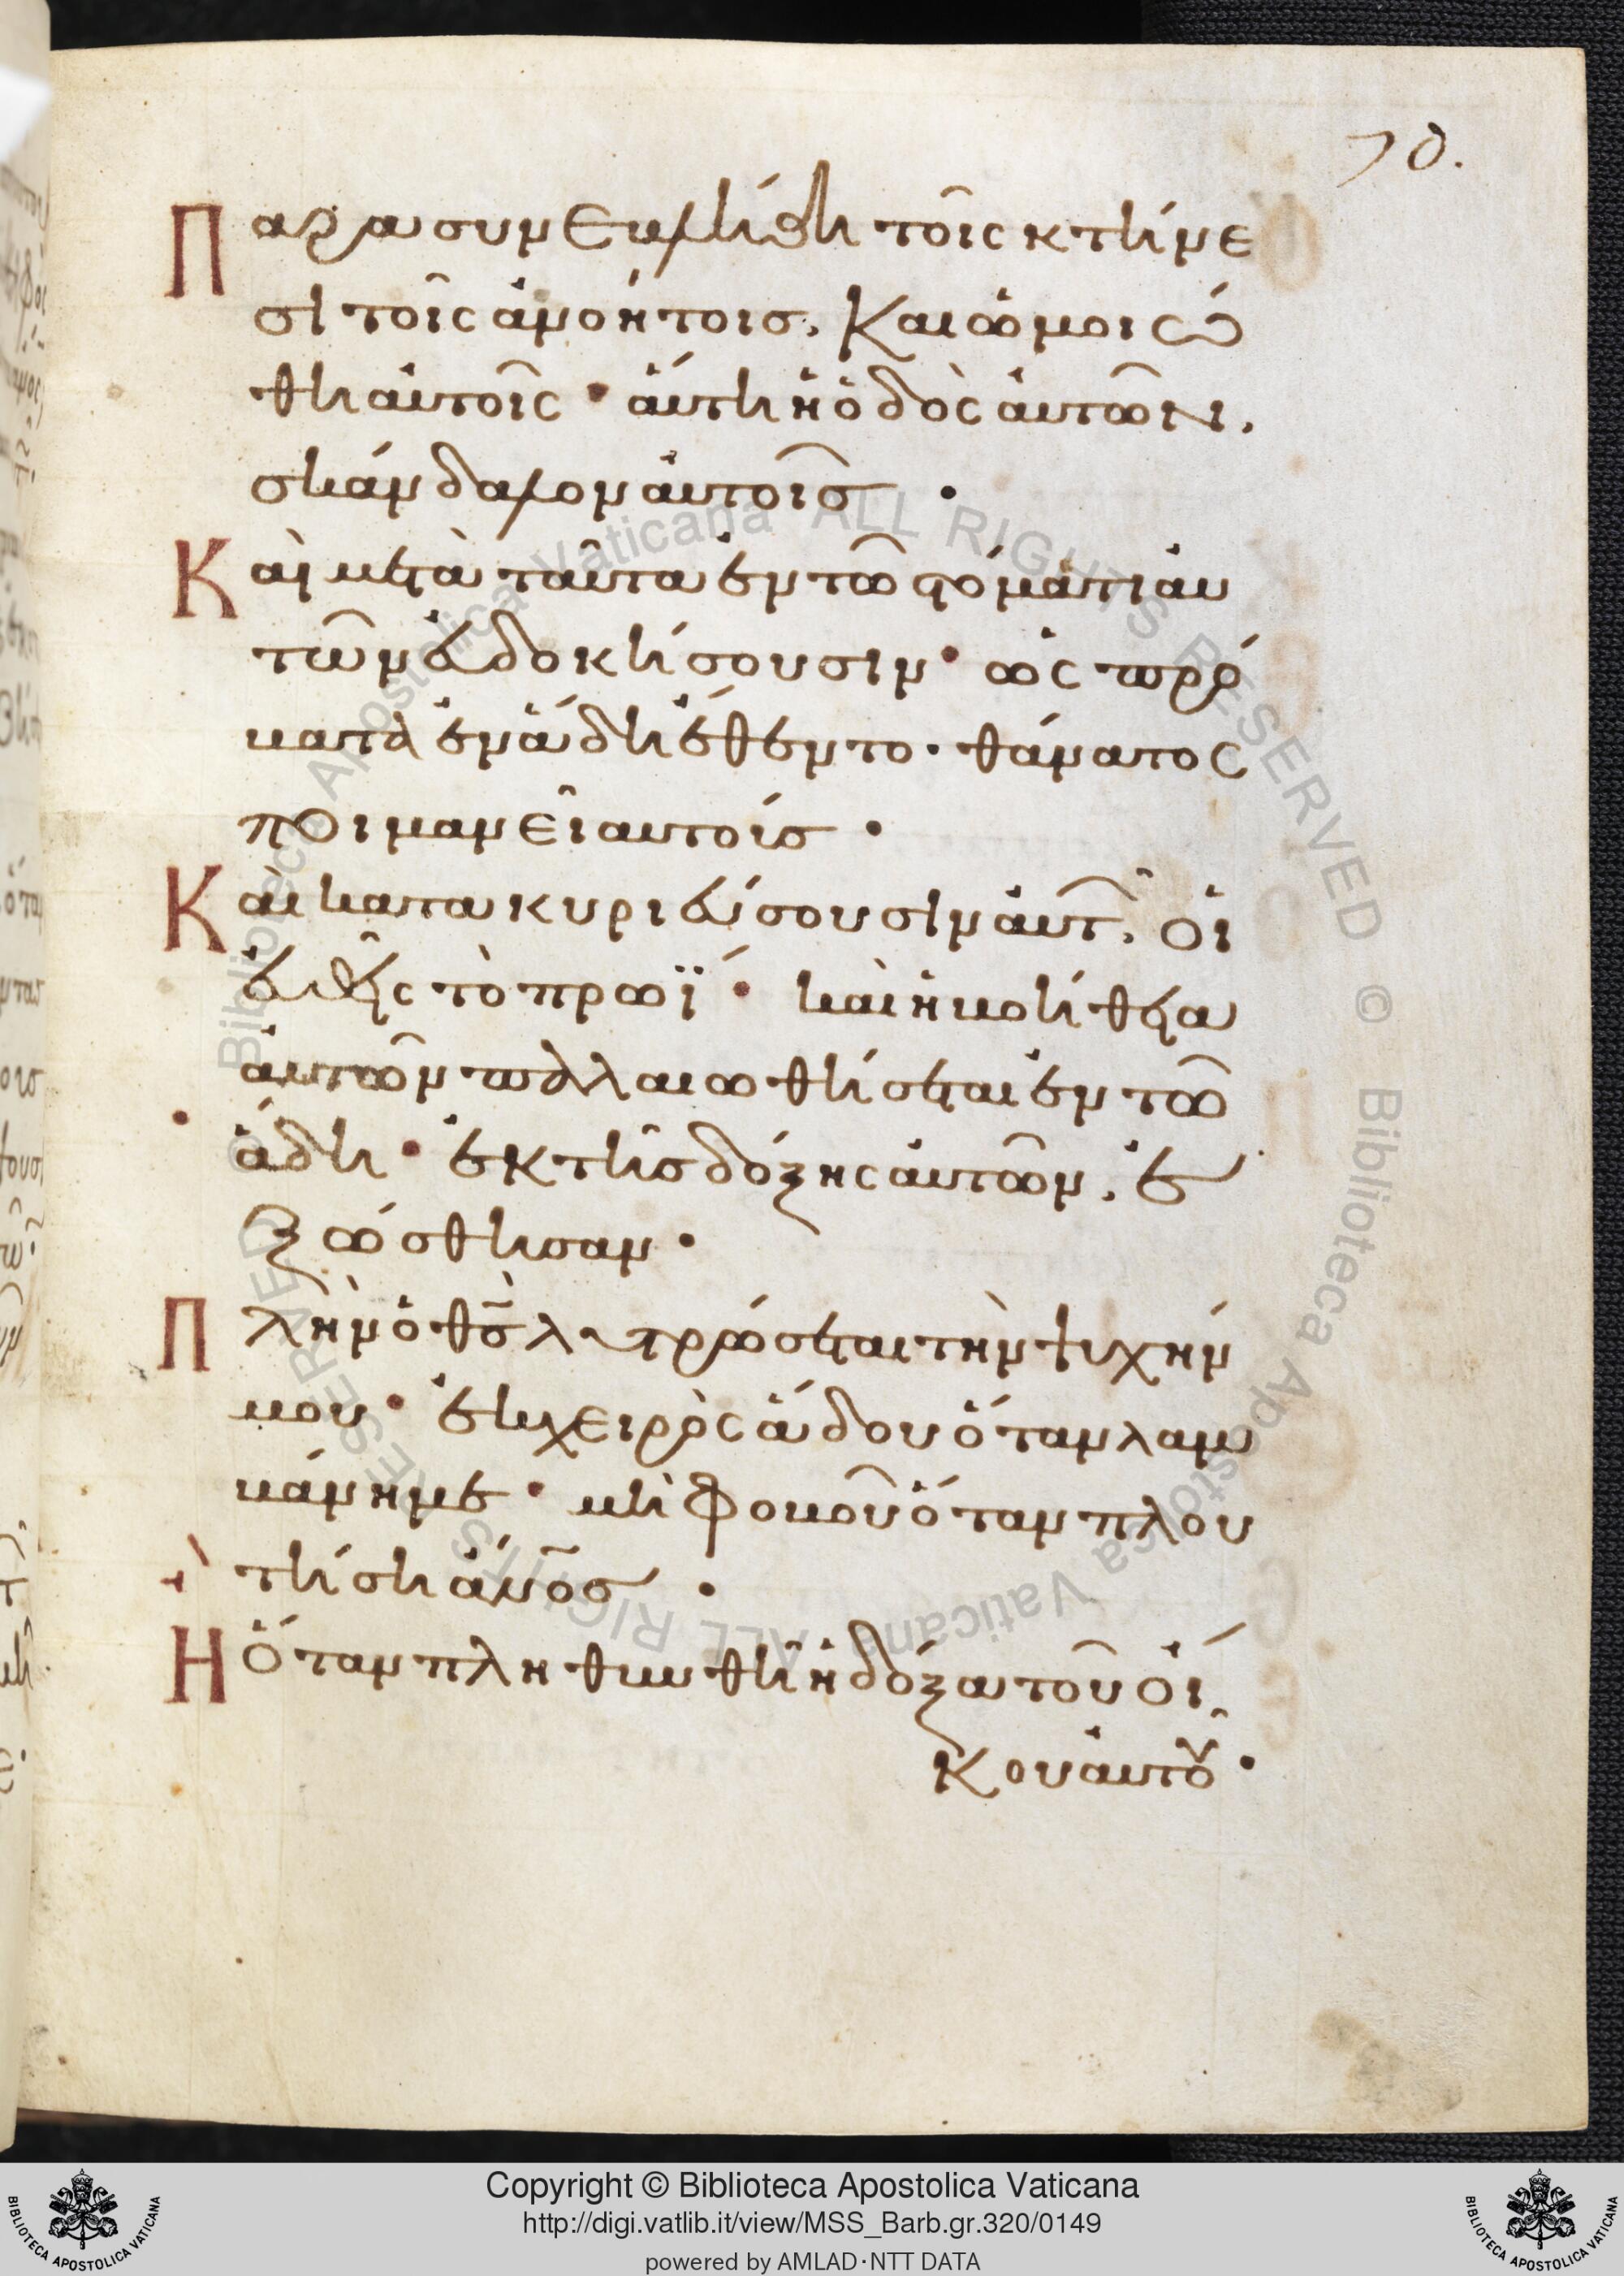 70.
Παρασυνεβλήθη τοῖς κτήνε
σι τοῖς ἀνοήτοις, καὶ ὡμοιώ
θη αὐτοῖς · αὕτη ἡ ὁδὸς αὐτῶν,
σκάνδαλον αὐτοῖς ·
Καὶ μετὰ ταῦτα ἐν τῶ στόματι αὐ
τῶν εὐδοκήσουσιν · ὡς πρό
βατα ἐν ἅδη ἔθεντο · θάνατος
ποιμανεῖ αυτοίς ·
Καὶ κατακυριεύσουσιν αὐτῶν, οἱ
εὐθεῖς τὸ πρωΐ · καὶ ἡ βοήθεια
αὐτῶν παλαιωθήσεται ἐν τῶ
ἅδη · ἐκ τῆς δόξης αὐτῶν, ἐ
ξώσθησαν ·
Πλὴν ὁ θς λυτρώσεται τὴν ψυχήν
μου · ἐκ χειρὸς ἅδου ὅταν λαμ
βάνη με · μὴ φοβοῦ ὅταν πλου
τήση ἄνος ·
Ἢ ὅταν πληθυνθῆ ἡ δόξα τοῦ οἴ
κου αὐτοῦ ·
Copyright © Biblioteca Apostolica Vaticana
http://digi.vatlib.it/view/MSS_Barb.gr.320/0149
powered by AMLAD·NTT DATA
BIBLIOTECA APOSTOLICA VATICANA
BIBLIOTECA APOSTOLICA VATICANA
© Biblioteca Apostolica Vaticana ALL RIGHTS RESERVED
© Biblioteca Apostolica Vaticana ALL RIGHTS RESERVED